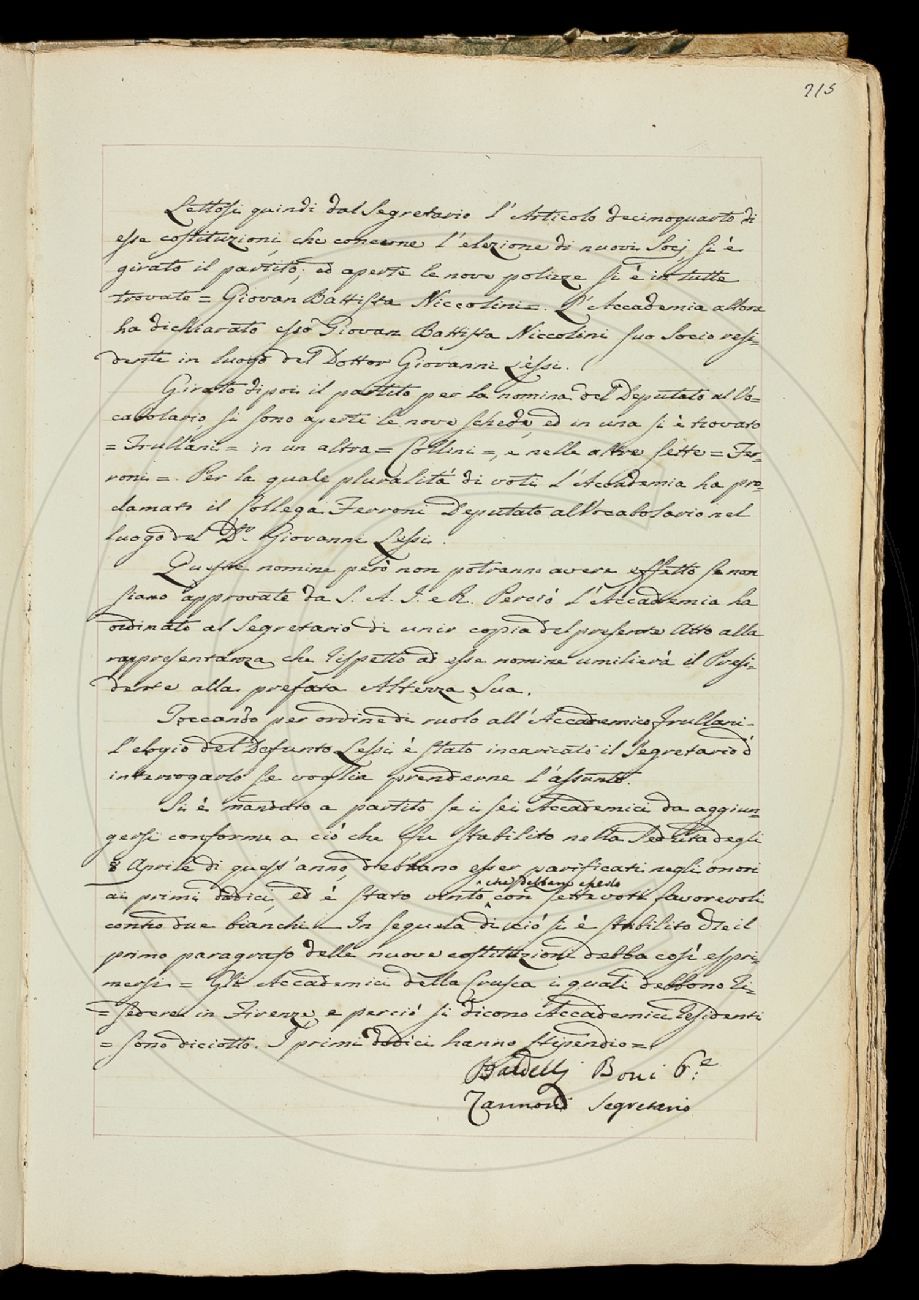 215
Lettosi quindi dal Segretario l'Articolo decimoquarto di
esse costituzioni che concerne l'elezione di nuovi Socj si è
girato il partito; ed aperte le nove polizze si è in tutte
trovato = Giovan Battista Niccolini =. L'Accademia allora
ha dichiarato esso Giovan Battista Niccolini suo Socio resi-
dente in luogo del Dottor Giovanni Lessi.
Girato dipoi il partito per la nomina del Deputato al Vo=
cabolario, si sono aperte le nove schede, ed in una si è trovato
= Frullani = in un altra = Collini =, e nelle altre sette = Fer=
roni =. Per la quale pluralità di voti l'Accademia ha pro=
clamato il Collega Ferroni Deputato al Vocabolario nel
luogo del D.re Giovanni Lessi.
Queste nomine però non potranno avere effetto se non
siano approvate da S. A. I. e R. Perciò l'Accademia ha
ordinato al Segretario di unir copia del presente Atto alla
rappresentanza che rispetto ad esse nomine umilierà il Presi-
dente alla prefata Altezza Sua.
Toccando per ordine di ruolo all'Accademico Frullani
l'elogio del Defunto Lessi è stato incaricato il Segretario d'
interrogarlo se voglia prenderne l'assunto.
Si è mandato a partito se i sei Accademici da aggiun-
gersi conforme a ciò che fu stabilito nella Seduta degli
8 Aprile di quest'anno debbano esser parificati negli onori
ai primi dodici, ed è stato vinto che debbano esserlo con sette voti favorevoli
contro due bianchi. In sequela di ciò si è stabilito che il
primo paragrafo delle nuove costituzioni debba così espri-
mersi = Gli Accademici della Crusca i quali debbono ri-
= sedere in Firenze e perciò si dicono Accademici residenti
= sono diciotto. I primi dodici hanno stipendio =
Baldelli Boni
Zannoni Segretario